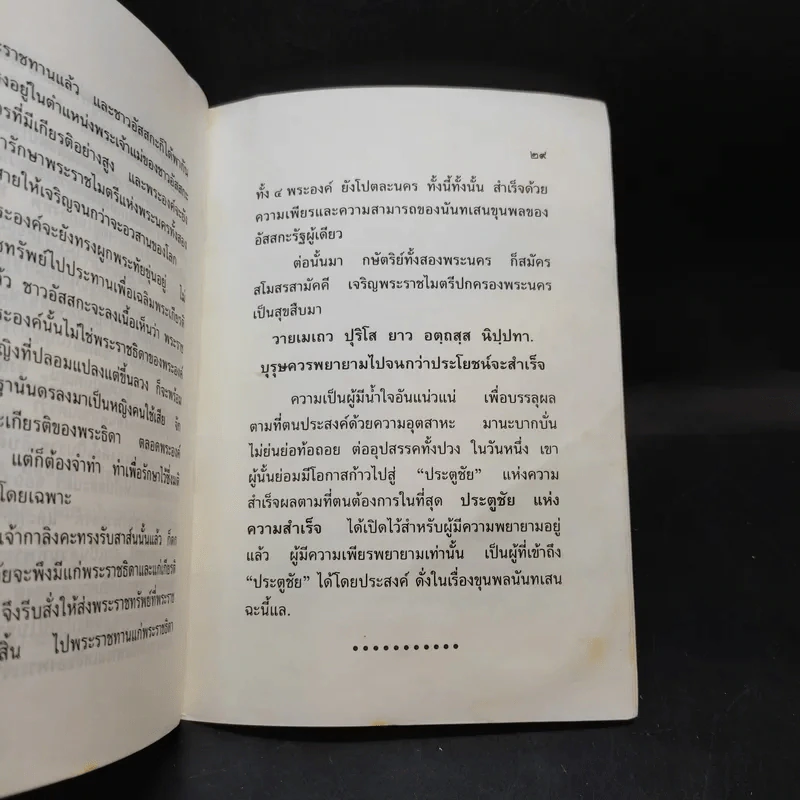 ะราชทานแล้ว และชาวอัสสกะก็ได้พากัน
งอยู่ในตำแหน่งพระเจ้าแม่ของชาวอัสสกะ
ารที่มีเกียรติอย่างสูง และพระองค์จะยัง
ารักษาพระราชไมตรีแห่งพระนครทั้งสอง
สายให้เจริญจนกว่าจะอวสานของโลก
ระองค์จะยังทรงผูกพระทัยขุ่นอยู่ ไม่
ชทรัพย์ไปประทานเพื่อเฉลิมพระเกียรติ
ว ชาวอัสสกะจะลงเนื้อเห็นว่า พระราช
ระองค์นั้นไม่ใช่พระราชธิดาของพระองค์
หญิงที่ปลอมแปลงแต่ขึ้นลวง ก็จะพร้อม
ฐานันดรลงมาเป็นหญิงคนใช้เสีย จัก
ะเกียรติของพระธิดา ตลอดพระองค์
แต่ก็ต้องจำทำ ทำเพื่อรักษาไว้ซึ่งมติ
โดยเฉพาะ
เจ้ากาลิงคะทรงรับสาส์นนั้นแล้ว ก็ตก
ัยจะพึงมีแก่พระราชธิดาและแก่เกียรติ
จึงรีบสั่งให้ส่งพระราชทรัพย์ที่พระราช
สิ้น ไปพระราชทานแก่พระราชธิดา
๒๙
ทั้ง ๔ พระองค์ ยังโปตละนคร ทั้งนี้ทั้งนั้น สำเร็จด้วย
ความเพียรและความสามารถของนันทเสนขุนพลของ
อัสสกะรัฐผู้เดียว
ต่อนั้นมา กษัตริย์ทั้งสองพระนคร ก็สมัคร
สโมสรสามัคคี เจริญพระราชไมตรีปกครองพระนคร
เป็นสุขสืบมา
วายเมเถว ปุริโส ยาว อตฺถสฺส นิปฺปทา.
บุรุษควรพยายามไปจนกว่าประโยชน์จะสำเร็จ
ความเป็นผู้มีน้ำใจอันแน่วแน่ เพื่อบรรลุผล
ตามที่ตนประสงค์ด้วยความอุตสาหะ มานะบากบั่น
ไม่ย่นย่อท้อถอย ต่ออุปสรรคทั้งปวง ในวันหนึ่ง เขา
ผู้นั้นย่อมมีโอกาสก้าวไปสู่ “ประตูชัย” แห่งความ
สำเร็จผลตามที่ตนต้องการในที่สุด ประตูชัย แห่ง
ความสำเร็จ ได้เปิดไว้สำหรับผู้มีความพยายามอยู่
แล้ว ผู้มีความเพียรพยายามเท่านั้น เป็นผู้ที่เข้าถึง
“ประตูชัย” ได้โดยประสงค์ ดั่งในเรื่องขุนพลนันทเสน
ฉะนี้แล.
...........